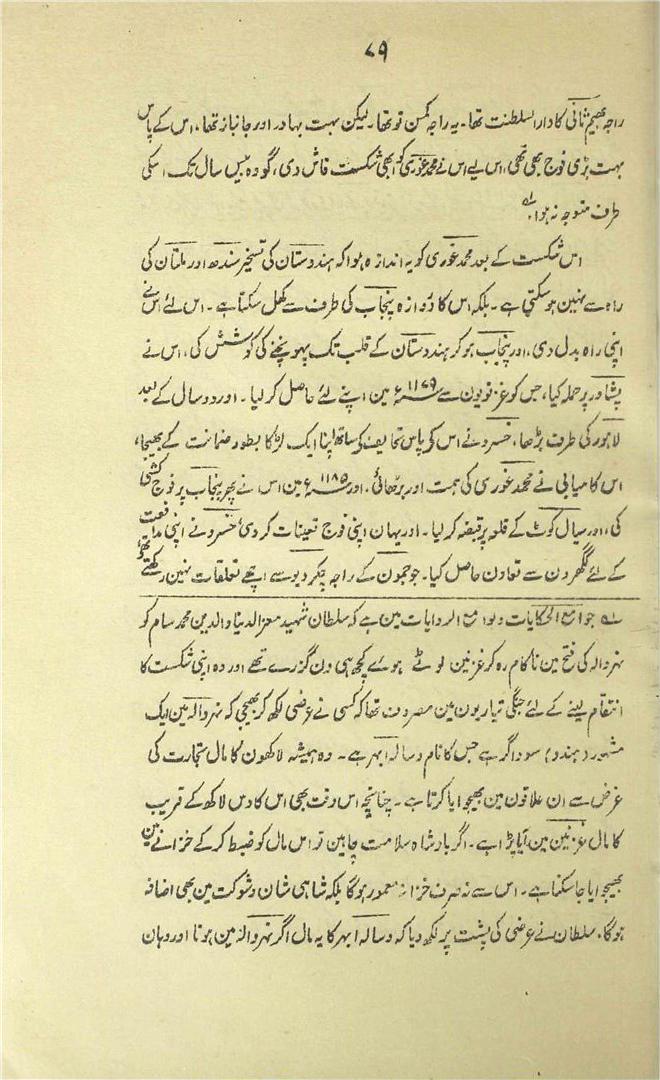 ۷۹
راجہ بھیم ثانی کا دارالسلطنت تھا۔ یہ راجہ کمسن تو تھا۔ لیکن بہت بہادر اور جانباز تھا، اس کے پاس
بہت بڑی فوج بھی تھی، اس لیے اس نے محمد غوری کو ابھی شکست فاش دی، گو وہ بیس سال تک اسکی
طرف متوجہ نہ ہوا۔ لہ
اس شکست کے بعد محمد غوری کو یہ اندازہ ہوا کہ ہندوستان کی تسخیر سندھ اور ملتان کی
راہ سے نہین ہو سکتی ہے۔ بلکہ اس کا دروازہ پنجاب کی طرف سے کھل سکتا ہے۔ اس لئے اس نے
اپنی راہ بدل دی، اور پنجاب ہو کر ہندوستان کے قلب تک پہونچنے کی کوشش کی، اس نے
پشاور پر حملہ کیا، جس کو غزنویون سے ۱۱۷۹ء مین اپنے لئے حاصل کر لیا۔ اور دو سال کے بعد
لاہور کی طرف بڑھا، خسرو نے اس کے پاس تحایف کے ساتھ اپنا ایک لڑکا بطور ضمانت کے بھیجا،
اس کامیابی نے محمد غوری کی ہمت اور بڑھائی، اور ۱۱۸۵ء مین اس نے پھر پنجاب پر فوج کشی
کی، اور سیال کوٹ کے قلعہ پر قبضہ کر لیا۔ اور یہان اپنی فوج تعینات کر دی، خسرو نے اپنی مدافعت
کے لئے گکھرون سے تعاون حاصل کیا۔ جو جمون کے راجہ چکر دیو سے اچھے تعلقات نہین رکھتے تھے،
لہ جوامع الحکایات ولوامع الروایات مین ہے کہ سلطان شہید معزالدینا والدین محمد سام کو
نہروالہ کی فتح مین ناکام رہ کر غزنین لوٹے ہوے کچھ ہی دن گزرے تھے اور وہ اپنی شکست کا
انتقام لینے کے لئے جنگی تیاریون مین مصروف تھا کہ کسی نے عرضی لکھ کر بھیجی کہ نہروالہ مین ایک
مشہور (ہندو) سوداگر ہے جس کا نام وسالہ ابھر ہے۔ وہ ہمیشہ لاکھون کا مال تجارت کی
غرض سے ان علاقون مین بھیجوایا کرتا ہے۔ چنانچہ اس وقت بھی اس کا دس لاکھ کے قریب
کا مال غزنین مین آیا پڑا ہے۔ اگر بادشاہ سلامت چاہین تو اس مال کو ضبط کر کے خزانے مین
بھیجوایا جا سکتا ہے۔ اس سے نہ صرف خزانہ معمور ہو گا بلکہ شاہی شان و شوکت مین بھی اضافہ
ہوگا، سلطان نے عرضی کی پشت پر لکھ دیا کہ وسالہ ابھر کا یہ مال اگر نہروالہ مین ہوتا اور وہان